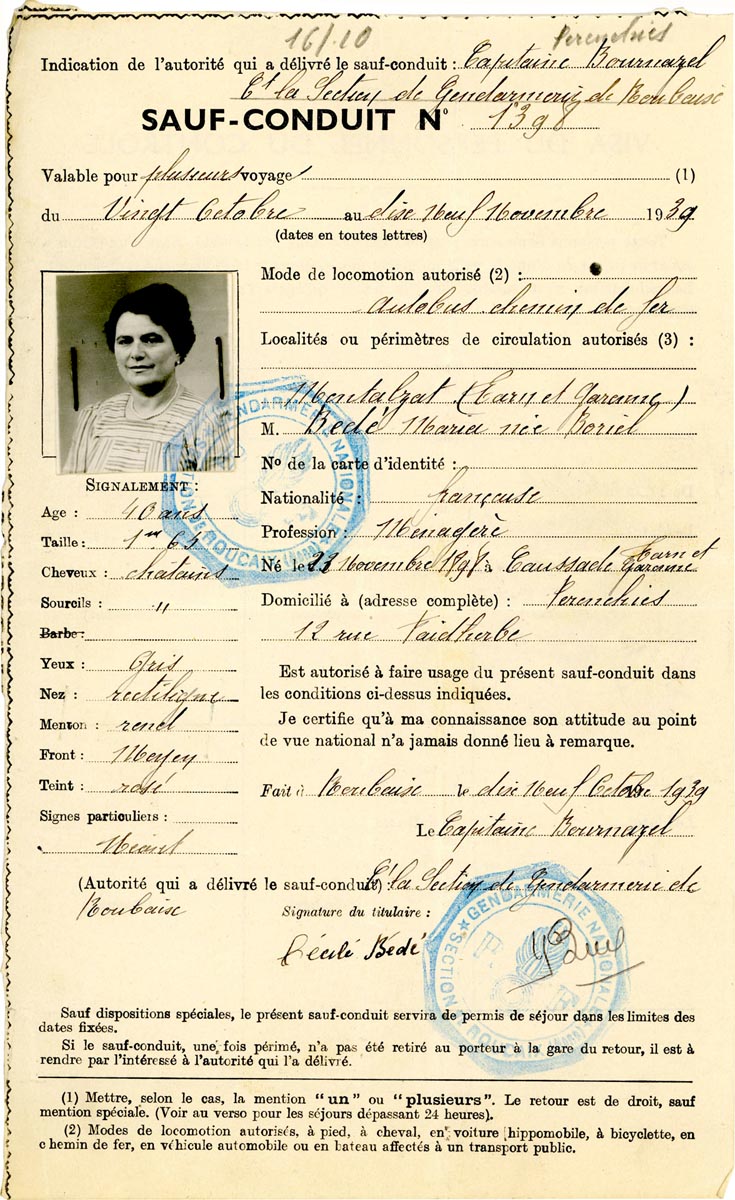 16/10 Perenchies
Indication de l'autorité qui a délivré le sauf-conduit : Capitaine Bournazel
Ct la Section de Gendarmerie de Roubaise
SAUF-CONDUIT N° 1398
Valable pour plusieurs voyage (1)
du Vingt Octobre au dise Neuf Novembre 1939
(dates en toutes lettres)
Mode de locomotion autorisé (2) :
autobus chemin de fer
Localités ou périmètres de circulation autorisés (3) :
Montalzat (Tarn et Garonne)
M. Bedé Maria née Boriel
N° de la carte d'identité :
Nationalité : française
Profession : Ménagère
Né le 23 Novembre 1898 à Caussade Tarn et Garonne
Domicilié à (adresse complète) : Perenchies
12 rue Faidherbe
SIGNALEMENT :
Age : 40 ans
Taille : 1m 64
Cheveux : chatains
Sourcils : "
Barbe :
Yeux : Gris
Nez : rectiligne
Menton : rond
Front : Moyen
Teint : rosé
Signes particuliers :
Néant
Est autorisé à faire usage du présent sauf-conduit dans
les conditions ci-dessus indiquées.
Je certifie qu'à ma connaissance son attitude au point
de vue national n'a jamais donné lieu à remarque.
Fait à Roubaise le dise Neuf Octobre 1939
Le Capitaine Bournazel
(Autorité qui a délivré le sauf-conduit) : Ct la Section de Gendarmerie de
Roubaise
Signature du titulaire :
Cécile Bedé
GENDARMERIE NATIONALE
SECTION DE ROUBAIX
GENDARMERIE NATIONALE
SECTION
Sauf dispositions spéciales, le présent sauf-conduit servira de permis de séjour dans les limites des
dates fixées.
Si le sauf-conduit, une fois périmé, n'a pas été retiré au porteur à la gare du retour, il est à
rendre par l'intéressé à l'autorité qui l'a délivré.
(1) Mettre, selon le cas, la mention "un" ou "plusieurs". Le retour est de droit, sauf
mention spéciale. (Voir au verso pour les séjours dépassant 24 heures).
(2) Modes de locomotion autorisés, à pied, à cheval, en voiture hippomobile, à bicyclette, en
chemin de fer, en véhicule automobile ou en bateau affectés à un transport public.